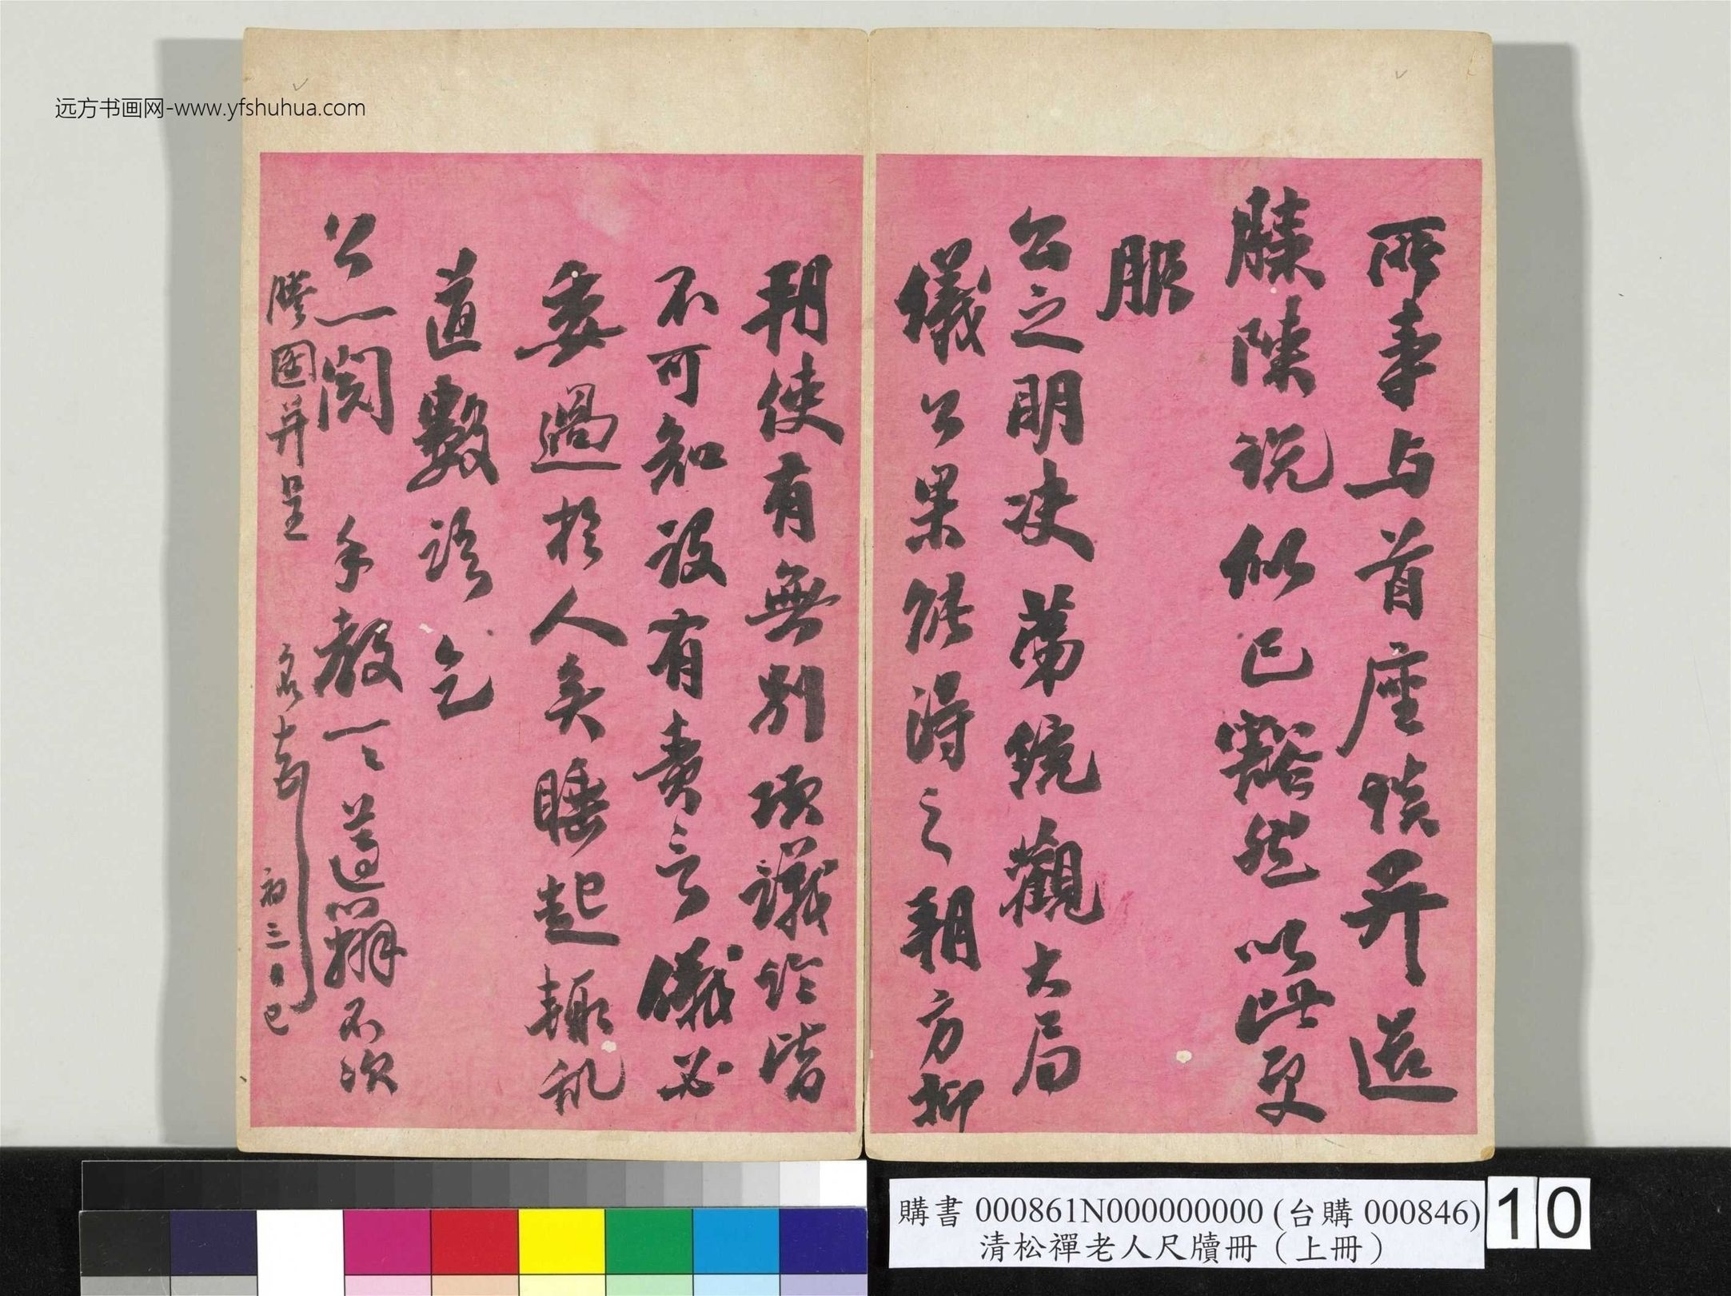 远方书画网-www.yfshuhua.com
所事与首座談并送
牋陳说似已豁然以此更
服
公之明决第統觀大局
儀公果能得之翱方抑
翱使有無别項議论皆
不可知设有责言儀必
委過於人矣睡起輒
道數语乞
公一閱 手教一一遵辦不次
牋圖并呈 初三日巳
購書 000861N000000000 (台購 000846)
清松禪老人尺牘冊（上冊）
10